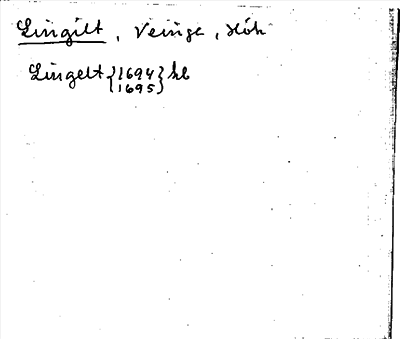 Lingilt, Veinge, Hök
Lingelt {1694} hl
{1695}